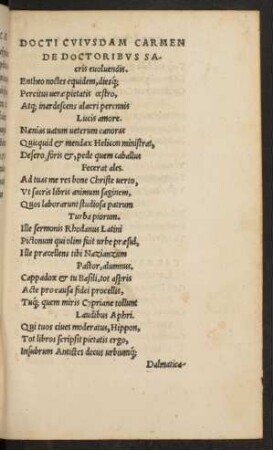 DOCTI CVIVSDAM CARMEN
DE DOCTORIBVS SA-
cris euoluendis.
Entheo noctes equidem, diesq;
Percitus ueræ pietatis œstro,
Atq; inardescens alacri perennis
Lucis amore.
Nænias uatum ueterum canoras
Quicquid & mendax Helicon ministrat,
Desero foris &, pede quem caballus
Fecerat ales.
Ad tuas me res bone Christe uerto,
Vt sacris libris animum saginem,
Quos laborarunt studiosa patrum
Turba piorum.
Ille sermonis Rhodanus Latini
Pictonum qui olim fuit urbe præsul,
Ille præcellens tibi Nazianzum
Pastor, alumnus.
Cappadox & tu Basili, tot aspris
Acte pro causa fidei procellis,
Tuq; quem miris Cypriane tollunt
Laudibus Aphri.
Qui tuos ciues moderatus, Hippon,
Tot libros scripsit pietatis ergo,
Insubrum Antistes decus urbiumq;
Dalmatica-